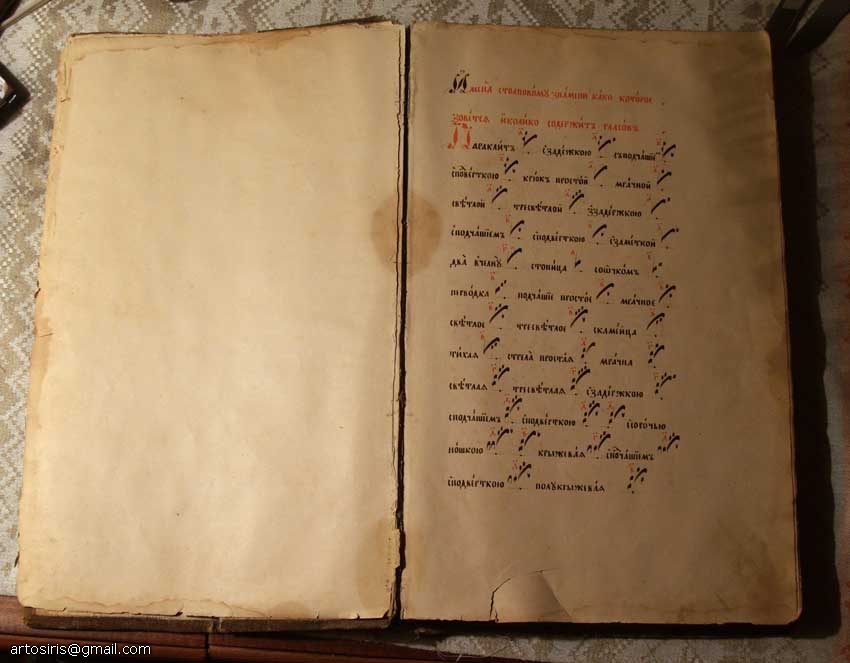 Имена столповому знамени како которое
зовется и колико содержит гласовъ
Параклитъ сзадержкою съподчашіе
споверткою крюкъ простой мрачной
светлой тресветлой сзадержкою
сподчашіемъ сподверткою сзаметкой
два вчелну стопица сочкомъ
переводка подчашіе простое мрачное
светлое тресветлое скамейца
тихая стрела простая мрачна
светлая тресветлая сзадержкою
сподчашіемъ сподверткою соочью
ношкою крыжевая сподчашіемъ
сподверткою полукрыжевая
artosiris@gmail.com